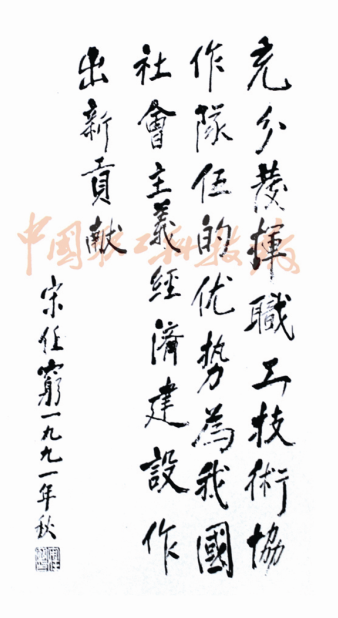 充分發揮職工技術協
作隊伍的优势為我國
社會主義經濟建設作
出新貢献
宋任窮一九九一年秋
中国职工科技报